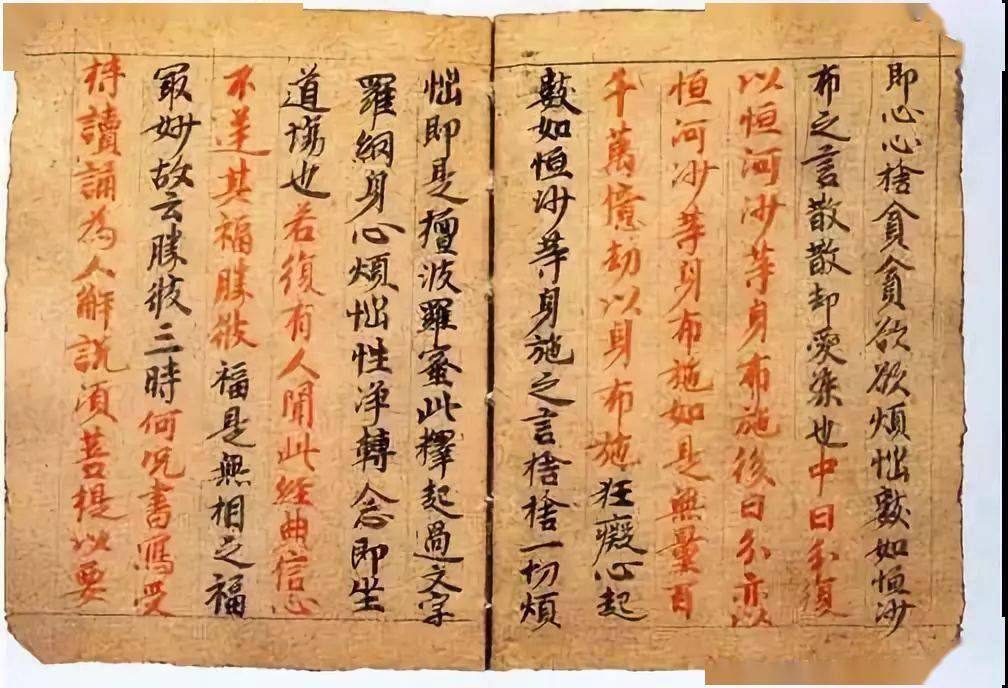 即心心捨貪貪欲欲煩惱數如恒沙
布之言散散却愛染也中日分復
以恒河沙等身布施後日分亦以
恒河沙等身布施如是無量百
千萬億劫以身布施狂癡心起
數如恒沙等身施之言捨捨一切煩
惱即是檀波羅蜜此釋起過文字
羅網身心煩惱性淨轉念即坐
道場也若復有人聞此經典信心
不逆其福勝彼福是無相之福
最妙故云勝彼三時何況書寫受
持讀誦為人解說須菩提以要